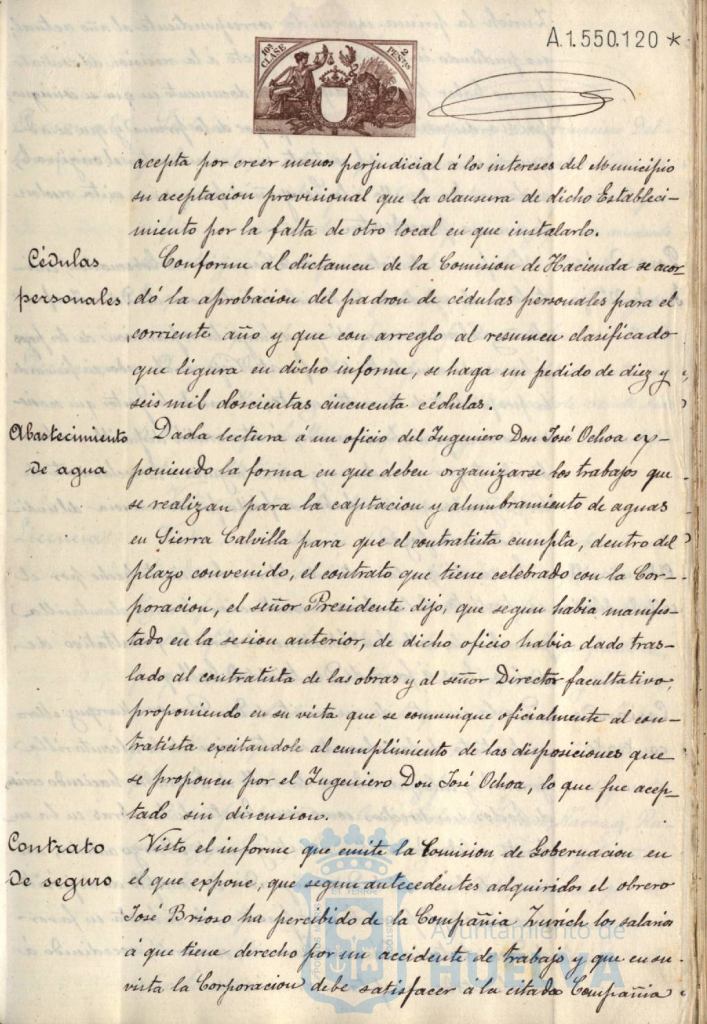 A.1.550.120 *
10ª CLASE
2 PESETAS
acepta por creer menos perjudicial á los intereses del Municipio
su aceptacion provisional que la clausura de dicho Estableci-
miento por la falta de otro local en que instalarlo.
Cédulas personales
Conforme al dictamen de la Comision de Hacienda se acor
dó la aprobacion del padron de cédulas personales para el
corriente año y que con arreglo al resumen clasificado
que figura en dicho informe, se haga un pedido de diez y
seis mil doscientas cincuenta cédulas.
Abastecimiento de agua
Dada lectura á un oficio del Ingeniero Don José Ochoa ex-
poniendo la forma en que deben organizarse los trabajos que
se realizan para la captacion y alumbramiento de aguas
en Sierra Calvilla para que el contratista cumpla, dentro del
plazo convenido, el contrato que tiene celebrado con la Cor-
poracion, el señor Presidente dijo, que segun habia manifes-
tado en la sesion anterior, de dicho oficio habia dado tras-
lado al contratista de las obras y al señor Director facultativo,
proponiendo en su vista que se comunique oficialmente al con-
tratista excitandole al cumplimiento de las disposiciones que
se proponen por el Ingeniero Don José Ochoa, lo que fue acep-
tado sin discusion.
Contrato de seguro
Visto el informe que emite la Comision de Gobernacion en
el que expone, que segun antecedentes adquiridos el obrero
José Brioso ha percibido de la Compañia Zurich los salarios
á que tiene derecho por un accidente de trabajo y que en su
vista la Corporacion debe satisfacer á la citada Compañia
Ayuntamiento de
HUELVA